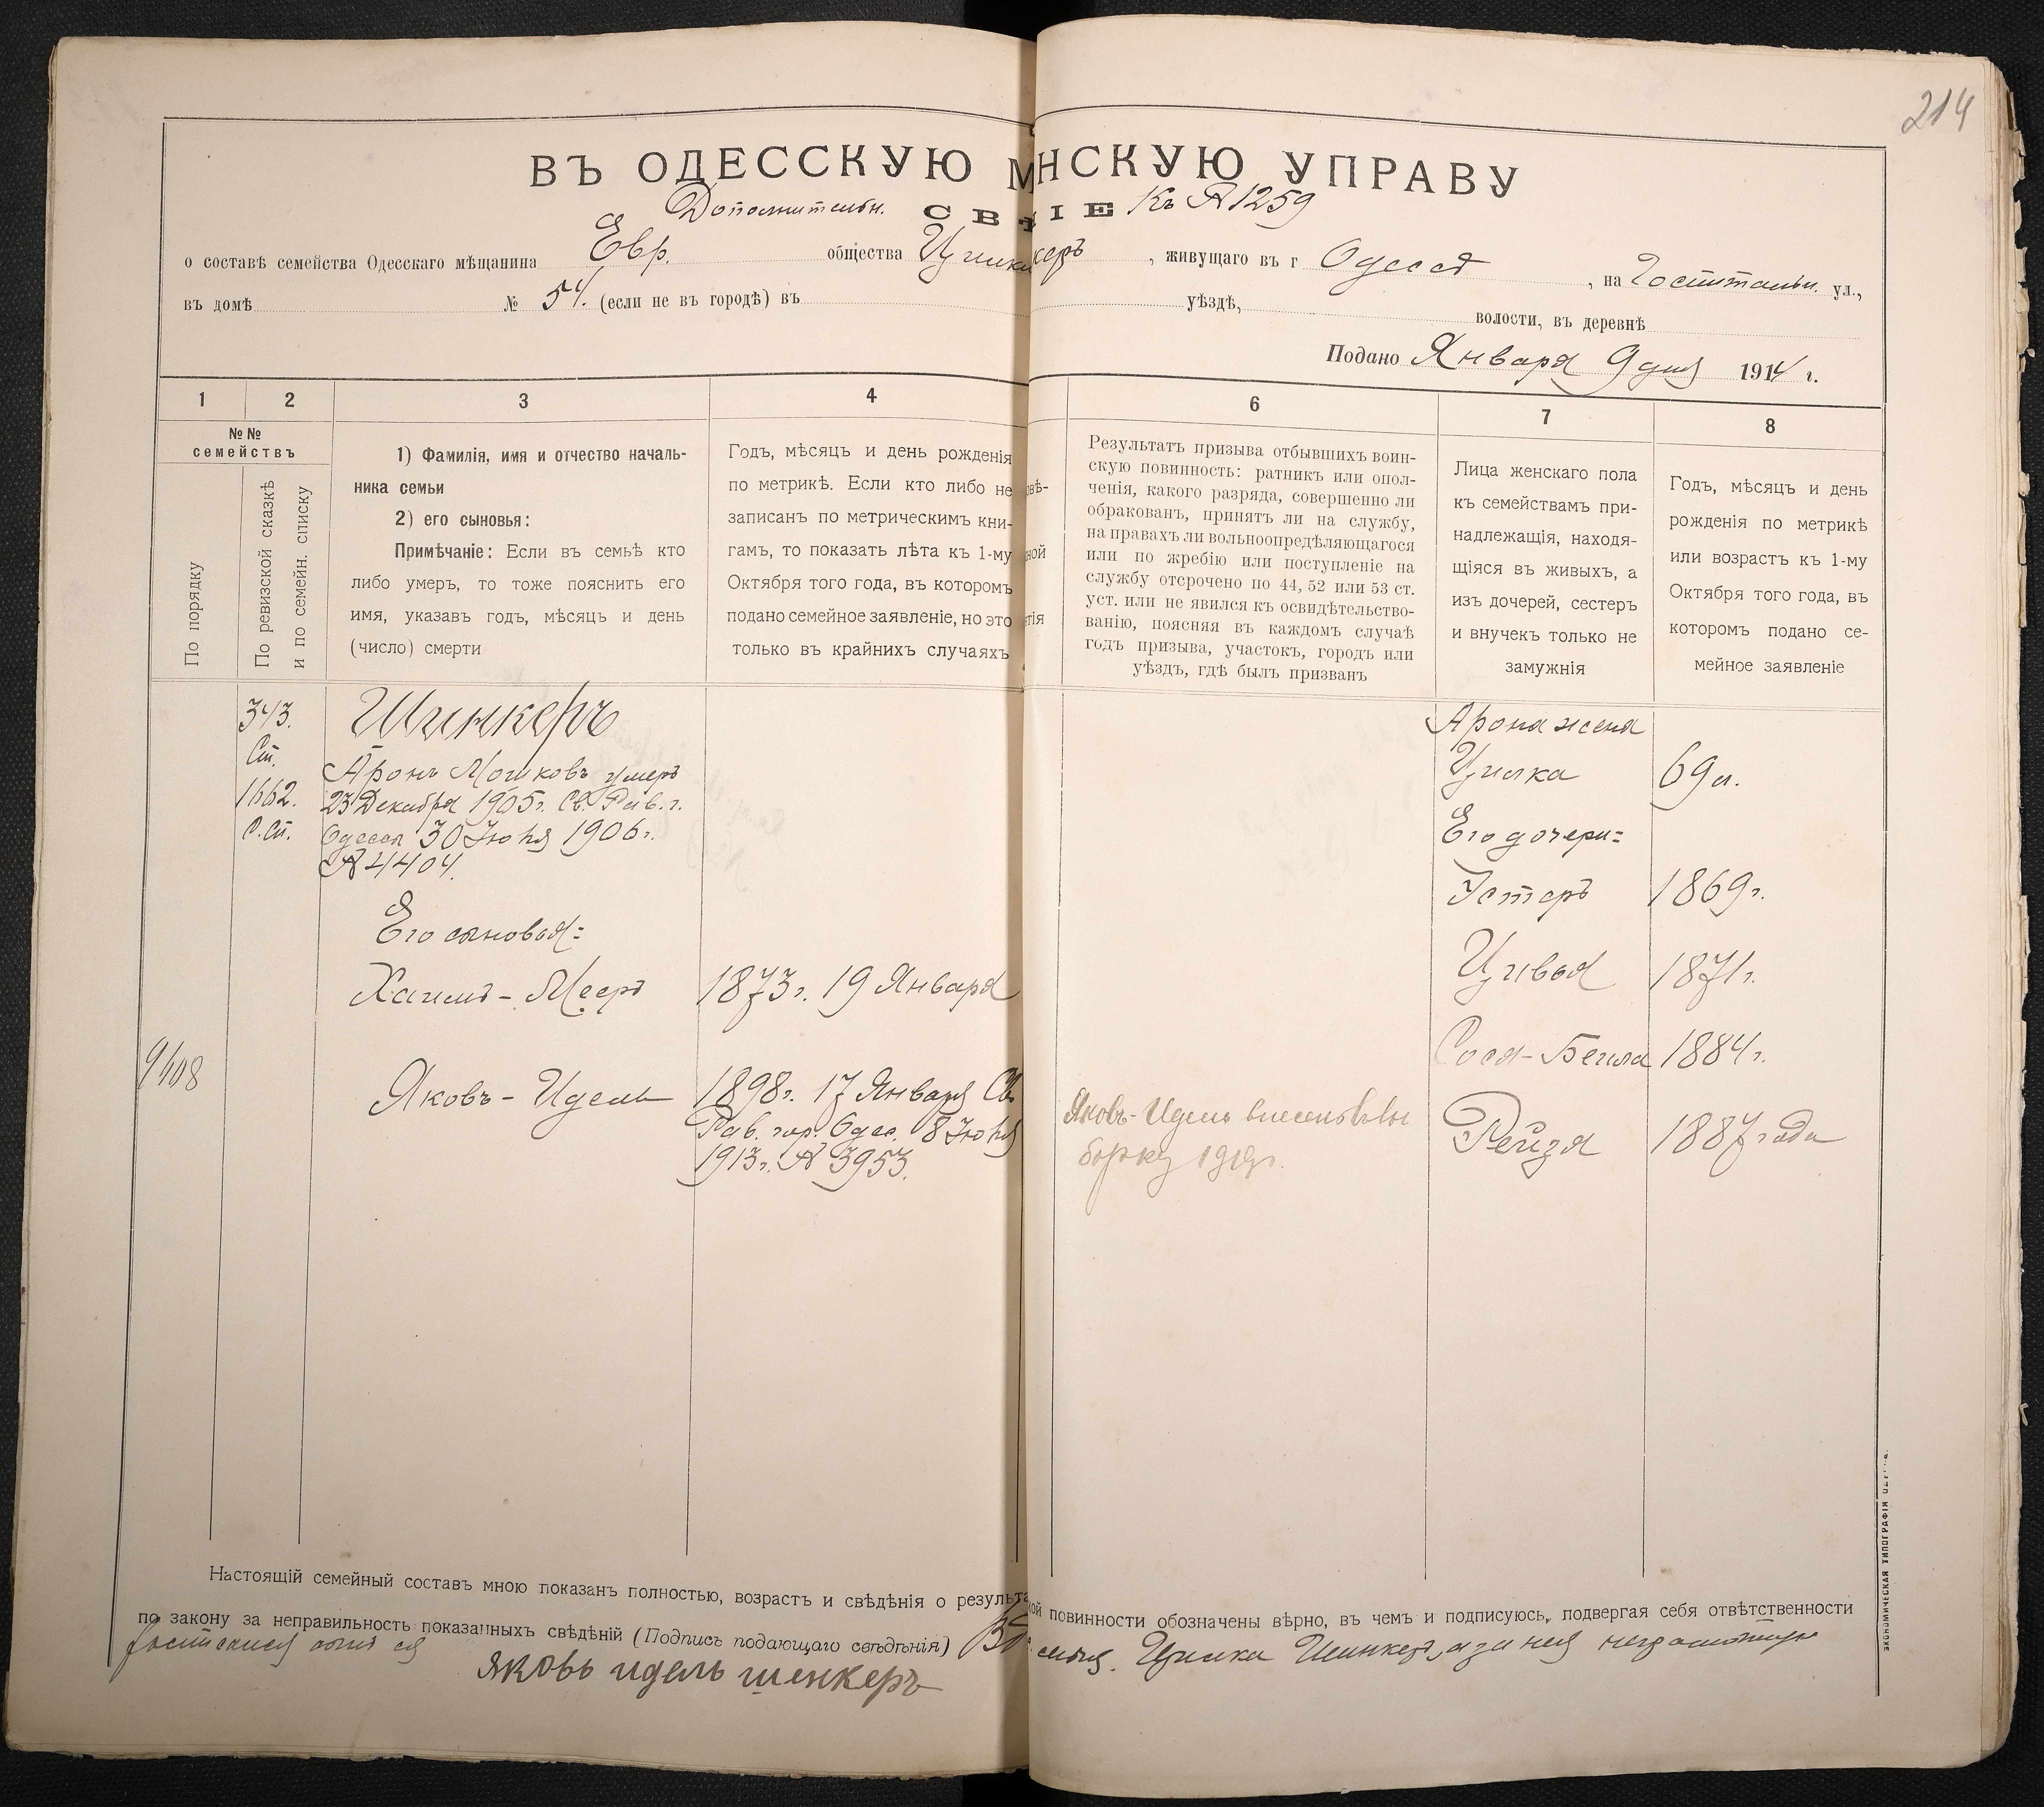 214
ВЪ ОДЕССКУЮ М НСКУЮ УПРАВУ
Дополнительн. СВ ІЕ Къ № 1259
о составѣ семейства Одесскаго мѣщанина Евр. общества Ци керъ, живущаго въ г Одессѣ, на Госпитальн. ул.,
въ домѣ № 54. (если не въ городѣ) въ уѣздѣ, волости, въ деревнѣ
Подано Января 9 дня 1914 г.
1 2 3 4 6 7 8
№№
семействъ
По порядку
По ревизской сказкѣ
и по семейн. списку
1) Фамилія, имя и отчество началь-
ника семьи
2) его сыновья:
Примѣчаніе: Если въ семьѣ кто
либо умеръ, то тоже пояснить его
имя, указавъ годъ, мѣсяцъ и день
(число) смерти
Годъ, мѣсяцъ и день рожденія
по метрикѣ. Если кто либо не
записанъ по метрическимъ кни-
гамъ, то показать лѣта къ 1-му
Октября того года, въ которомъ
подано семейное заявленіе, но это
только въ крайнихъ случаяхъ
овѣ-
ной
тія
Результатъ призыва отбывшихъ воин-
скую повинность: ратникъ или опол-
ченія, какого разряда, совершенно ли
обракованъ, принятъ ли на службу,
на правахъ ли вольноопредѣляющагося
или по жребію или поступленіе на
службу отсрочено по 44, 52 или 53 ст.
уст. или не явился къ освидѣтельство-
ванію, поясняя въ каждомъ случаѣ
годъ призыва, участокъ, городъ или
уѣздъ, гдѣ былъ призванъ
Лица женскаго пола
къ семействамъ при-
надлежащія, находя-
щіяся въ живыхъ, а
изъ дочерей, сестеръ
и внучекъ только не
замужнія
Годъ, мѣсяцъ и день
рожденія по метрикѣ
или возрастъ къ 1-му
Октября того года, въ
которомъ подано се-
мейное заявленіе
343.
Сп.
1662.
С.Сп.
Шинкеръ
Аронъ Мошковъ умеръ
23 Декабря 1905 г. Св. Рав. г.
Одессы 30 Іюня 1906 г.
№ 4404.
Его сыновья:
Хаимъ-Мееръ 1873 г. 19 Января
9/108
Яковъ-Идель 1898 г. 17 Января Св.
Рав. гор. Одес. 8 Іюня
1913 г. № 3953.
Яковъ-Идель внесенъ въ вы
борку 1919 г.
Арона жена
Ципка 69 л.
Его дочери:
Эстеръ 1869 г.
Цивья 1871 г.
Сося-Бейла 1884 г.
Рейзя 1887 года
Настоящій семейный составъ мною показанъ полностью, возрастъ и свѣдѣнія о результа ой повинности обозначены вѣрно, въ чемъ и подписуюсь, подвергая себя отвѣтственности
по закону за неправильность показанныхъ свѣдѣній (Подпись подающаго свѣдѣнія) Ципка Шинкеръ, а за нея неграмотную
яковъ идель шенкеръ
ЭКОНОМИЧЕСКАЯ ТИПОГРАФІЯ